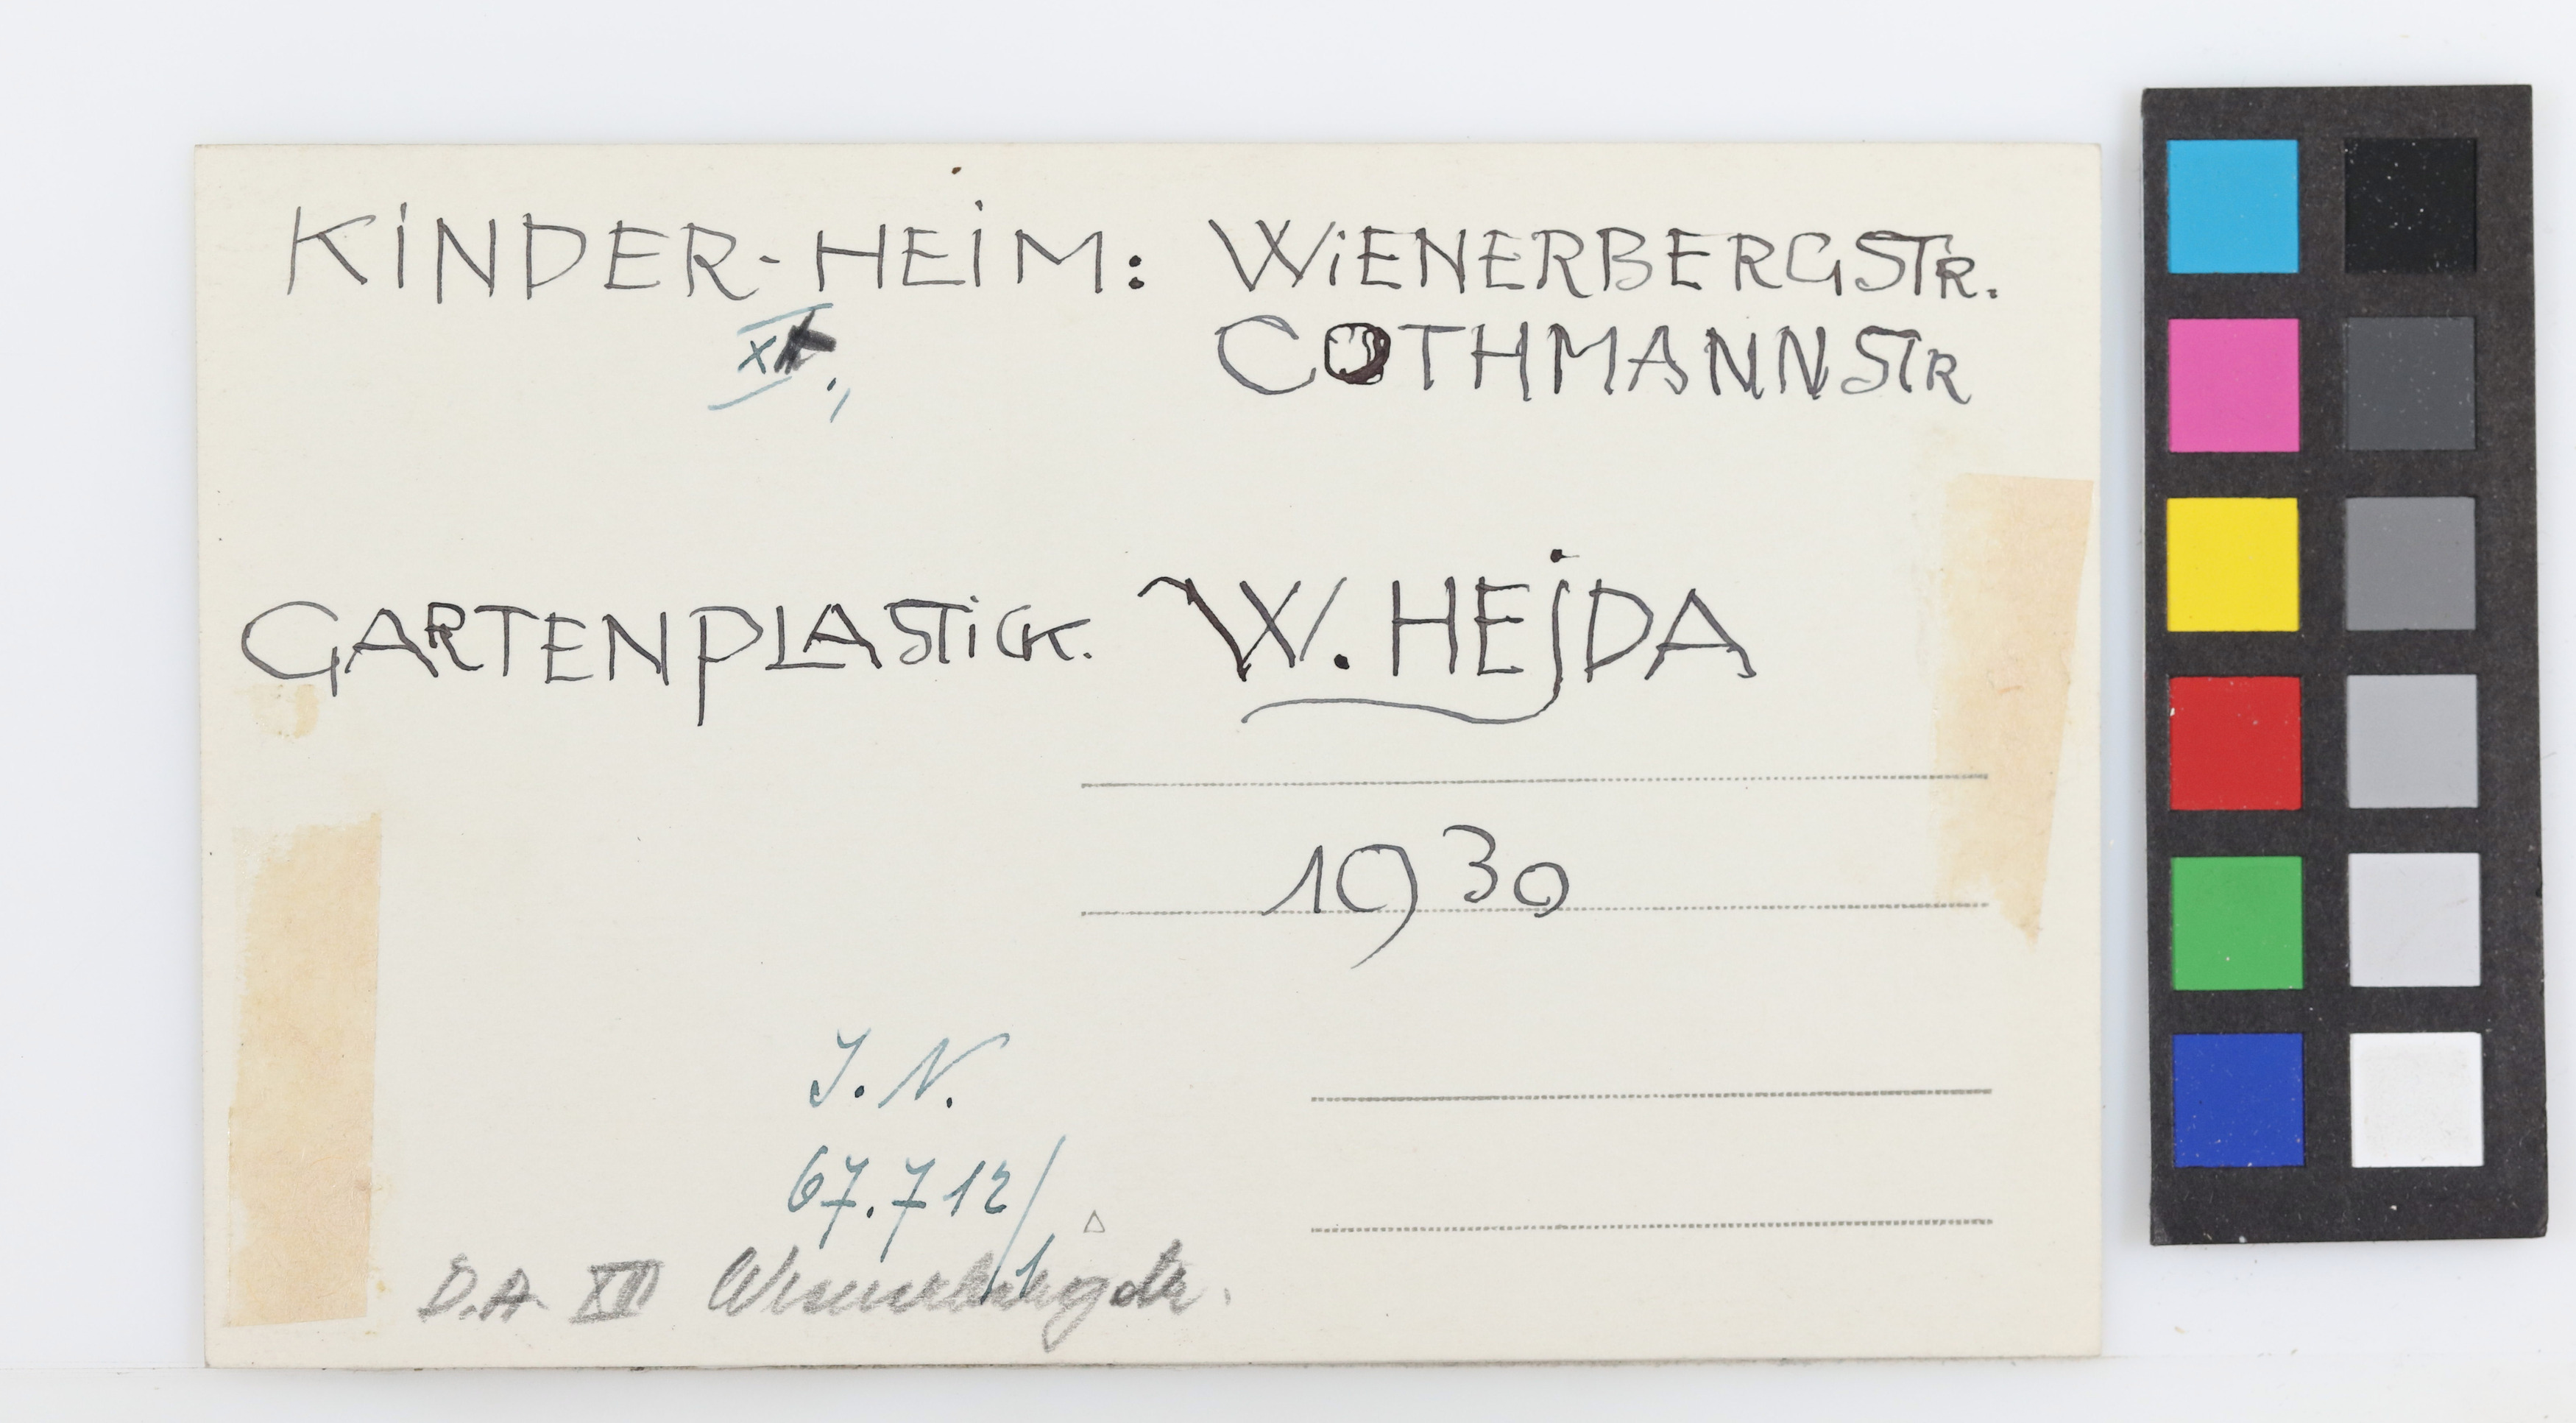 KINDER-HEIM: WIENERBERGSTR.
COTHMANNSTR
GARTENPLASTICK. W. HEJDA
1930
J. N.
67.712/1
D.A. XII Wienerbergstr.